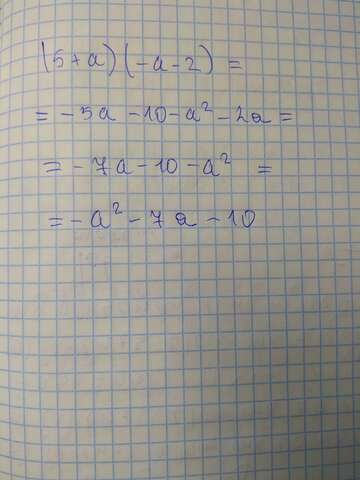 (5+a)(-a-2) =
= -5a -10-a² -2a =
= -7a -10 -a² =
= -a² -7a -10